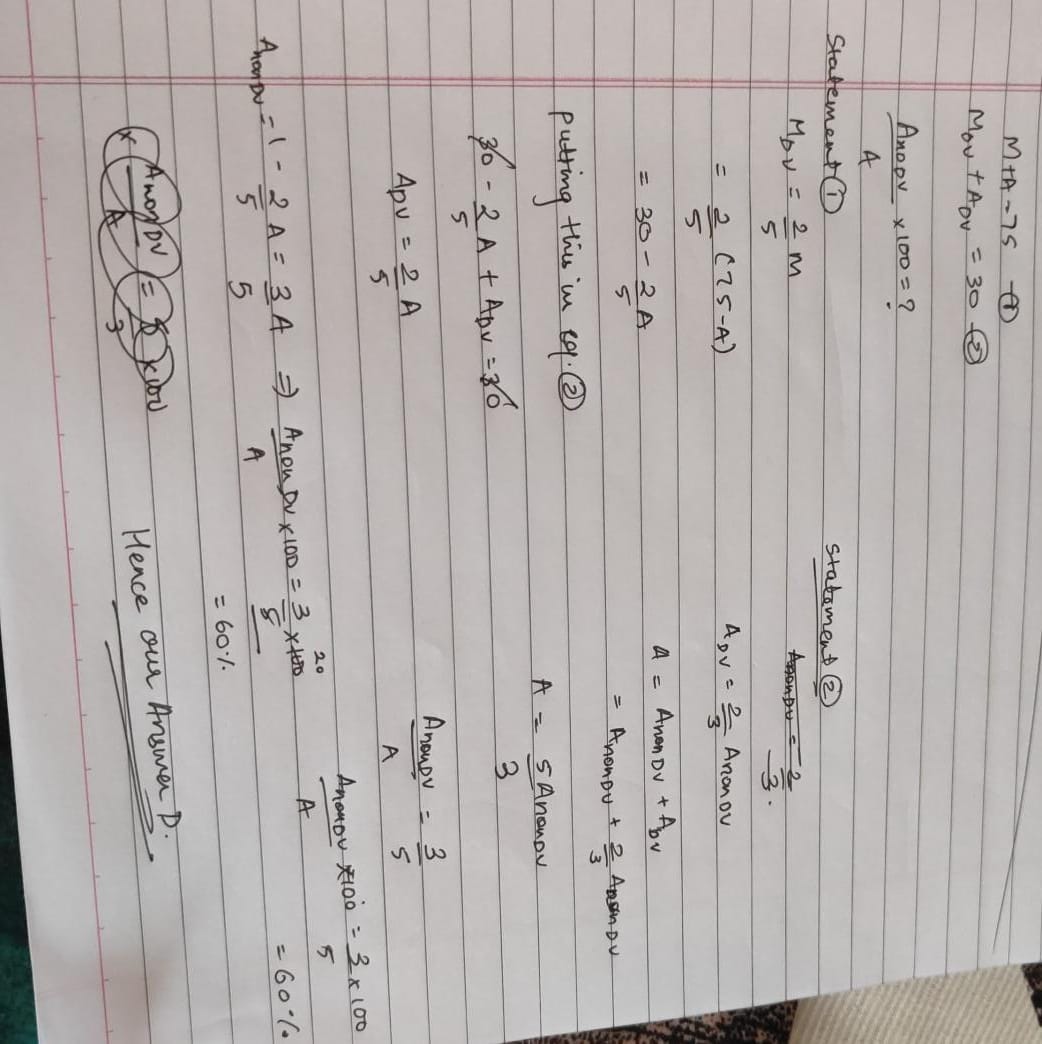 M+A=75 - ①
M_DV + A_DV = 30 ②
A_nonDV/A × 100 = ?
Statement ①
M_DV = 2/5 M
= 2/5 (75-A)
= 30 - 2/5 A
putting this in eq. ②
30 - 2/5 A + A_DV = 30
A_DV = 2/5 A
A_nonDV = 1 - 2/5 A = 3/5 A ⇒ A_nonDV/A × 100 = 3/5 × 100 20
= 60%
Statement ②
A_nonDV = 2/3.
A_DV = 2/3 A_nonDV
A = A_nonDV + A_DV
= A_nonDV + 2/3 A_nonDV
A = 5 A_nonDV/3
A_nonDV/A = 3/5
A_nonDV/A × 100 = 3/5 × 100
= 60%
Hence our Answer D.